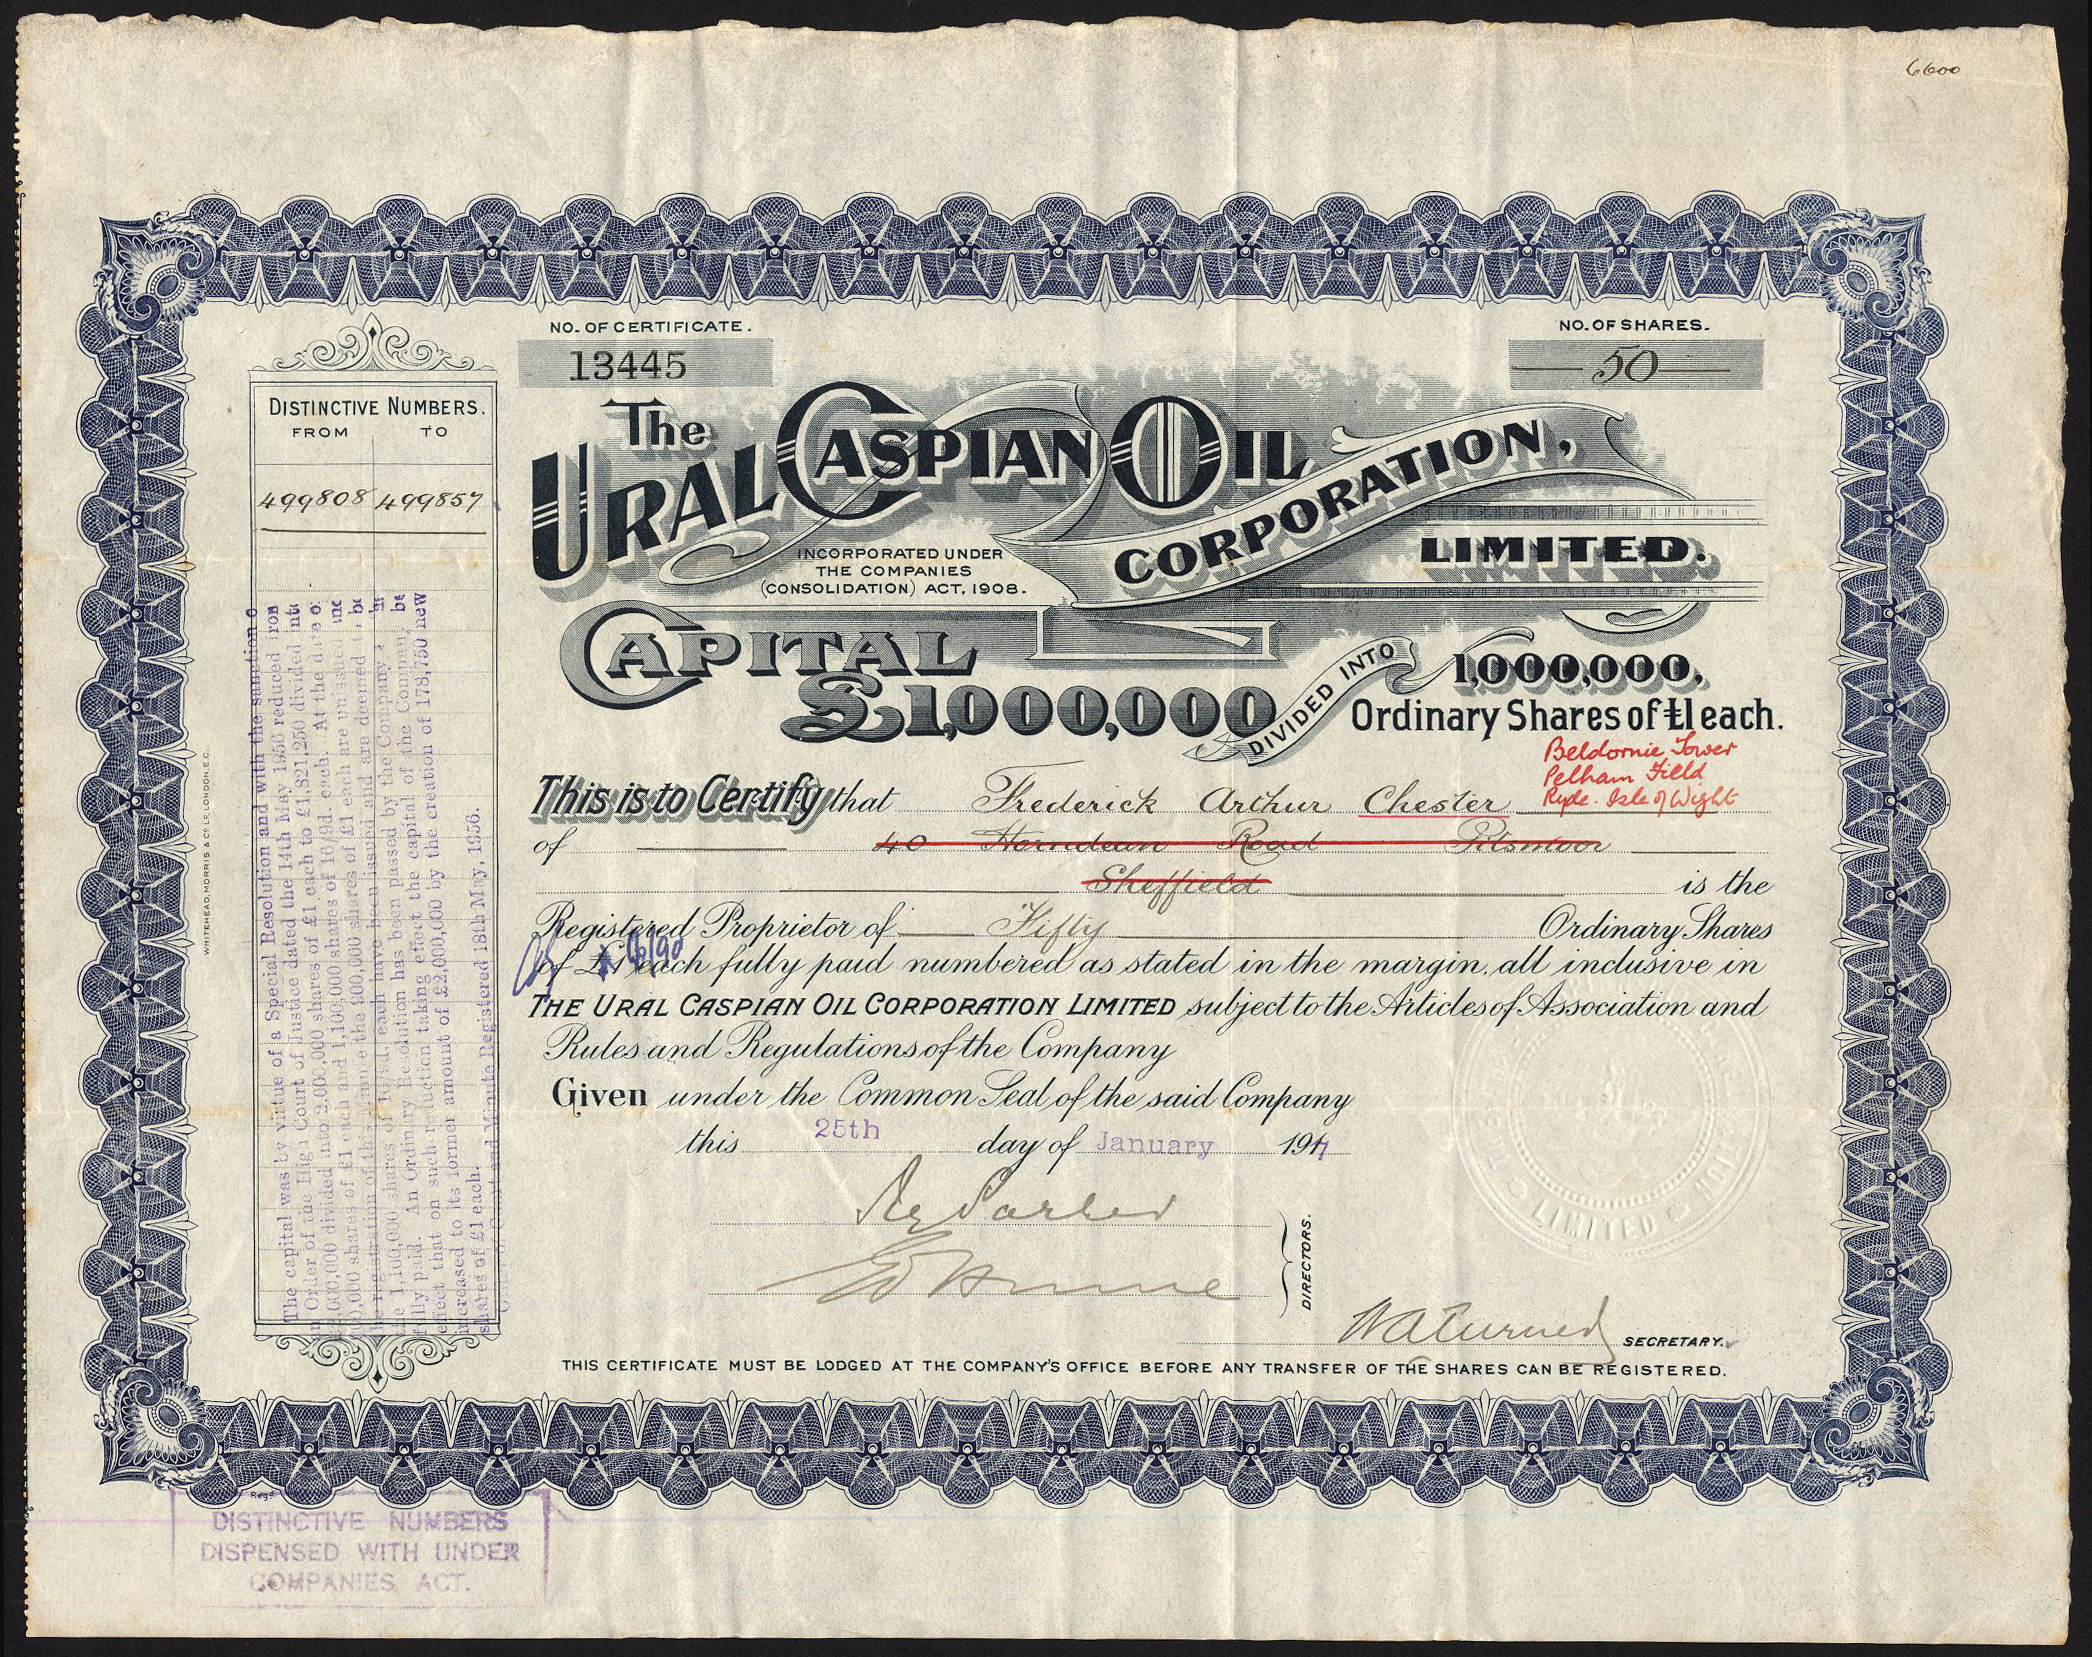 6600
NO. OF CERTIFICATE.
13445
NO. OF SHARES.
50
DISTINCTIVE NUMBERS.
FROM TO
499808 499857
The
URAL CASPIAN OIL
CORPORATION,
LIMITED.
INCORPORATED UNDER
THE COMPANIES
(CONSOLIDATION) ACT, 1908.
CAPITAL
£1,000,000
DIVIDED INTO
1,000,000,
Ordinary Shares of £1 each.
Beldornie Tower
Pelham Field
Ryde. Isle of Wight
This is to Certify that Frederick Arthur Chester
of 40 Horndean Road Pitsmoor
Sheffield is the
Registered Proprietor of Fifty Ordinary Shares
of £1 each fully paid numbered as stated in the margin, all inclusive in
16/9d
THE URAL CASPIAN OIL CORPORATION LIMITED subject to the Articles of Association and
Rules and Regulations of the Company
Given under the Common Seal of the said Company
this 25th day of January 1917
DIRECTORS.
SECRETARY.
THIS CERTIFICATE MUST BE LODGED AT THE COMPANY'S OFFICE BEFORE ANY TRANSFER OF THE SHARES CAN BE REGISTERED.
WHITEHEAD, MORRIS & CO LD, LONDON, E.C.
The capital was by virtue of a Special Resolution and with the sanction o
an Order of the High Court of Justice dated the 14th May 1956 reduced
,000,000 divided into 2,000,000 shares of £1 each to £1,821,250 divided
00,000 shares of £1 each and 1,100,000 shares of 16/9d. each. At the date o
he registration of this Minute the 900,000 shares of £1 each are unissued
the 1,100,000 shares of 16/9d. each have been issued and are deemed
fully paid. An Ordinary Resolution has been passed by the Company
effect that on such reduction taking effect the capital of the Company be
increased to its former amount of £2,000,000 by the creation of 178,750 new
shares of £1 each.
and Minute Registered 18th May, 1956.
LIMITED
Regd
DISTINCTIVE NUMBERS
DISPENSED WITH UNDER
COMPANIES ACT.